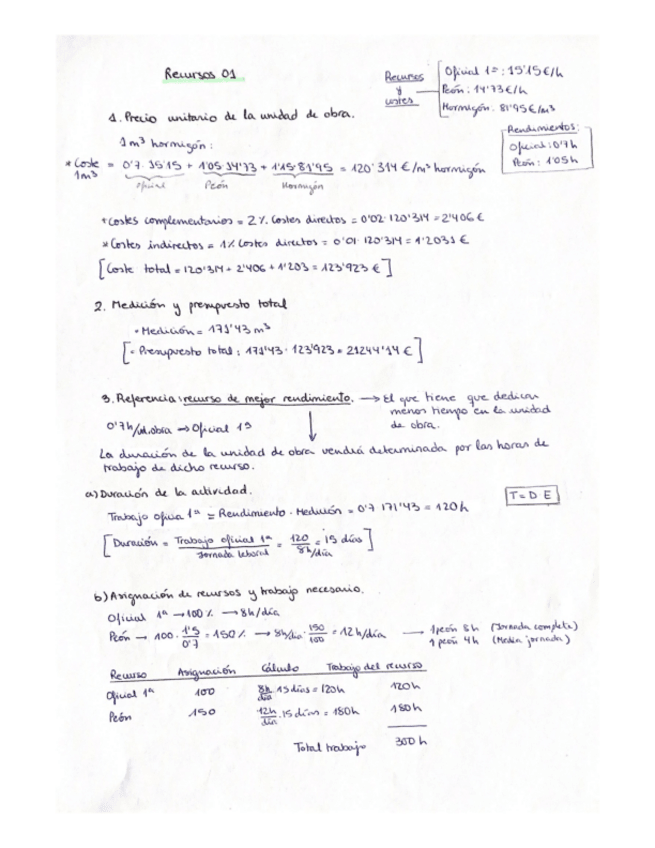 Recursos 01
Recursos y costes
Oficial 1ª: 15'15€/h
Peón: 14'73€/h
Hormigón: 81'95€/m³
1. Precio unitario de la unidad de obra.
Rendimientos:
Oficial: 0'7h
Peón: 1'05h
1m³ hormigón:
* Coste 1m³ = 0'7·15'15 + 1'05·14'73 + 1'15·81'95 = 120'314 €/m³ hormigón
Oficial Peón Hormigón
* Costes complementarios = 2% Costes directos = 0'02·120'314 = 2'406 €
* Costes indirectos = 1% Costes directos = 0'01·120'314 = 1'2031 €
[Coste total = 120'314 + 2'406 + 1'203 = 123'923 €]
2. Medición y presupuesto total
• Medición = 171'43 m³
[• Presupuesto total: 171'43 · 123'923 = 21244'14 €]
3. Referencia: recurso de mejor rendimiento. → El que tiene que dedicar
menos tiempo en la unidad
de obra.
0'7h/ud.obra → Oficial 1ª
La duración de la unidad de obra vendrá determinada por las horas de
trabajo de dicho recurso.
a) Duración de la actividad.
T = D E
Trabajo oficial 1ª = Rendimiento · Medición = 0'7 171'43 = 120h
[Duración = Trabajo oficial 1ª / Jornada laboral = 120 / 8h/día = 15 días]
b) Asignación de recursos y trabajo necesario.
Oficial 1ª → 100% → 8h/día
Peón → 100 · 1'5/0'7 = 150% → 8h/día · 150/100 = 12h/día → 1 peón 8h (Jornada completa)
1 peón 4h (Media jornada)
Recurso Asignación Cálculo Trabajo del recurso
Oficial 1ª 100 8h/día · 15 días = 120h 120h
Peón 150 12h/día · 15 días = 180h 180h
Total trabajo 300h